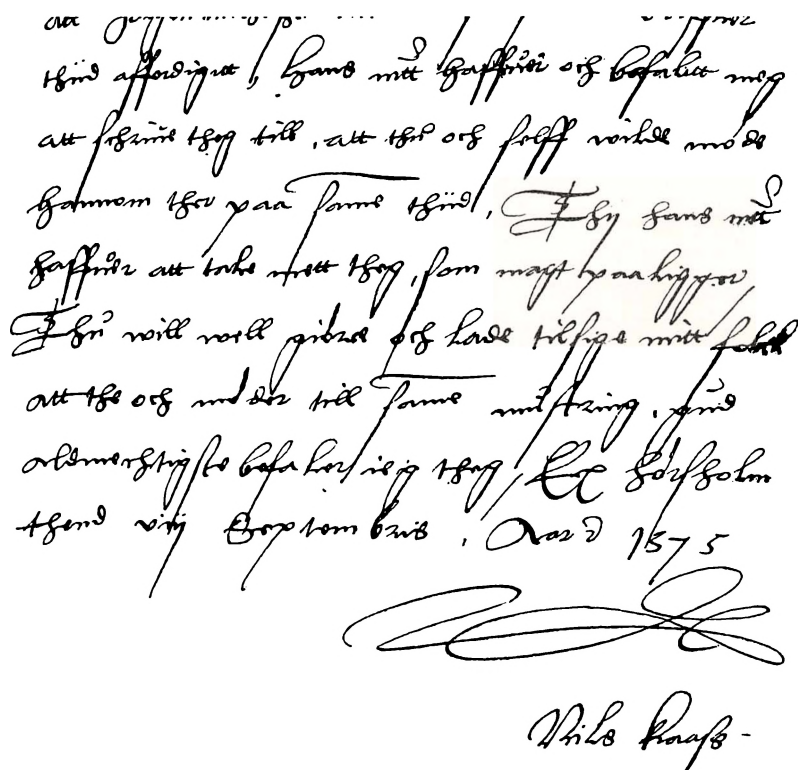 att
thiid affordigitt, Hans mtt haffuer och befalitt meg
att schriue theg till, att thu och selff wilde møde
hannom ther paa same thiid, Thij hans mtt
haffuer att tale mett theg, som magt paaligger,
Thu will well giøre och lade tilsige mitt folck
att the och møder till same mustring, gud
aldmechtigste befaler ieg theg, Ex Hørsholm
thend viij Septembris, Aar ꝛ 1575
Niels Kaass-